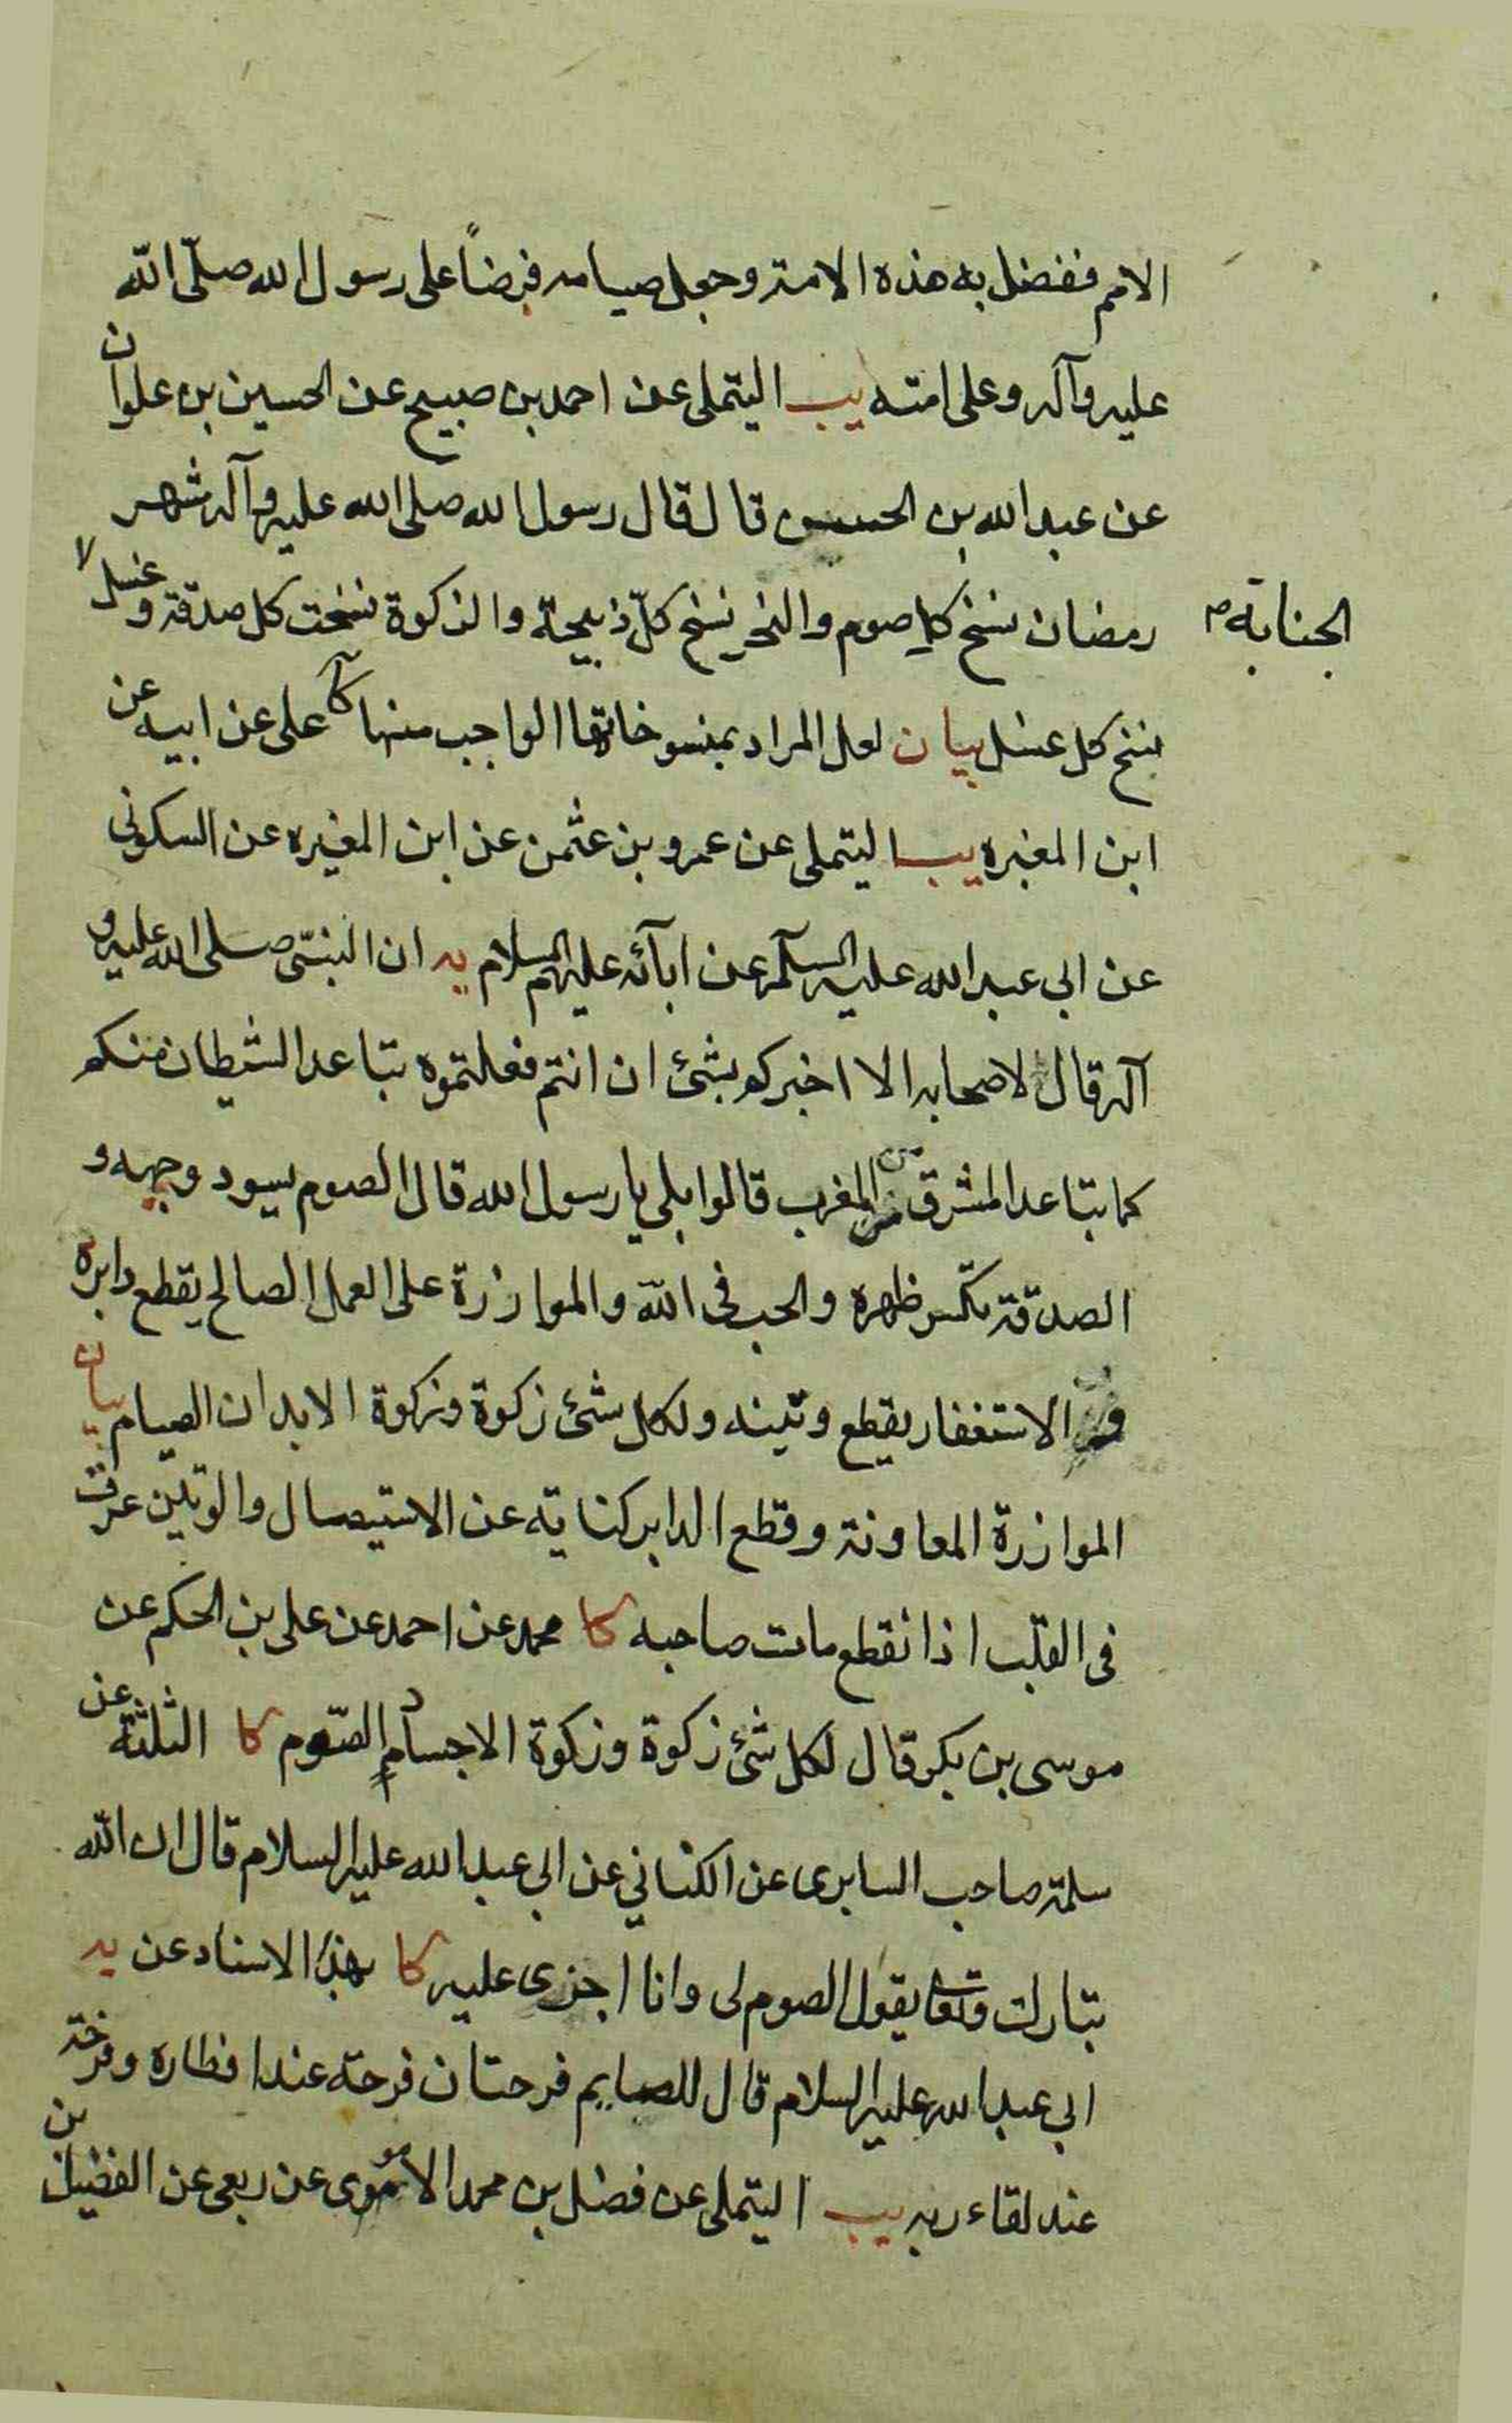 الامم ففضل به هذه الامة وجعل صيامه فرضاً على رسول الله صلّى الله
عليه وآله وعلى امته يب التيملى عن احمد بن صبيح عن الحسين بن علوان
عن عبد الله بن الحسن قال قال رسول الله صلى الله عليه وآله شهر
رمضان نسخ كل صوم والنحر نسخ كلّ ذبيحة والزكوة نسخت كل صدقة وغسل
الجنابة
نسخ كل غسل بيان لعل المراد بمنسوخاتها الواجب منها كا على عن ابيه عن
ابن المغيره يب التيملى عن عمرو بن عثمن عن ابن المغيره عن السكونى
عن ابى عبد الله عليه السلم عن ابآئه عليهم السلام يه ان النبىّ صلى الله عليه و
آله قال لاصحابه الا اخبركم بشئ ان انتم فعلتموه تباعد الشيطان منكم
كما تباعد المشرق من المغرب قالوا بلى يا رسول الله قال الصوم يسود وجهه و
الصدقة تكسر ظهره والحب فى الله والموازرة على العمل الصالح يقطع دابره
و الاستغفار يقطع وتينه ولكل شئ زكوة وزكوة الابدان الصيام بيان
الموازرة المعاونة وقطع الدابر كناية عن الاستيصال والوتين عرق
فى القلب اذا نقطع مات صاحبه كا محمد عن احمد عن على بن الحكم عن
موسى بن بكر قال لكل شئ زكوة وزكوة الاجساد الصّوم كا الثلثة عن
سلمة صاحب السابرى عن الكنانى عن ابى عبد الله عليه السلام قال ان الله
تبارك وتعا يقول الصوم لى وانا اجزى عليه كا بهذا الاسناد عن يه
ابى عبد الله عليه السلام قال للصايم فرحتان فرحة عند افطاره وفرحة
عند لقاء ربه يب التيملى عن فضل بن محمد الاموى عن ربعى عن الفضيل بن